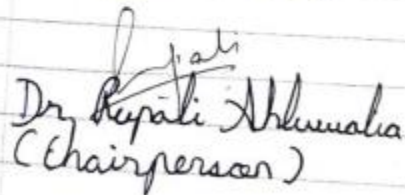 Dr Rupali Ahluwalia
(Chairperson)